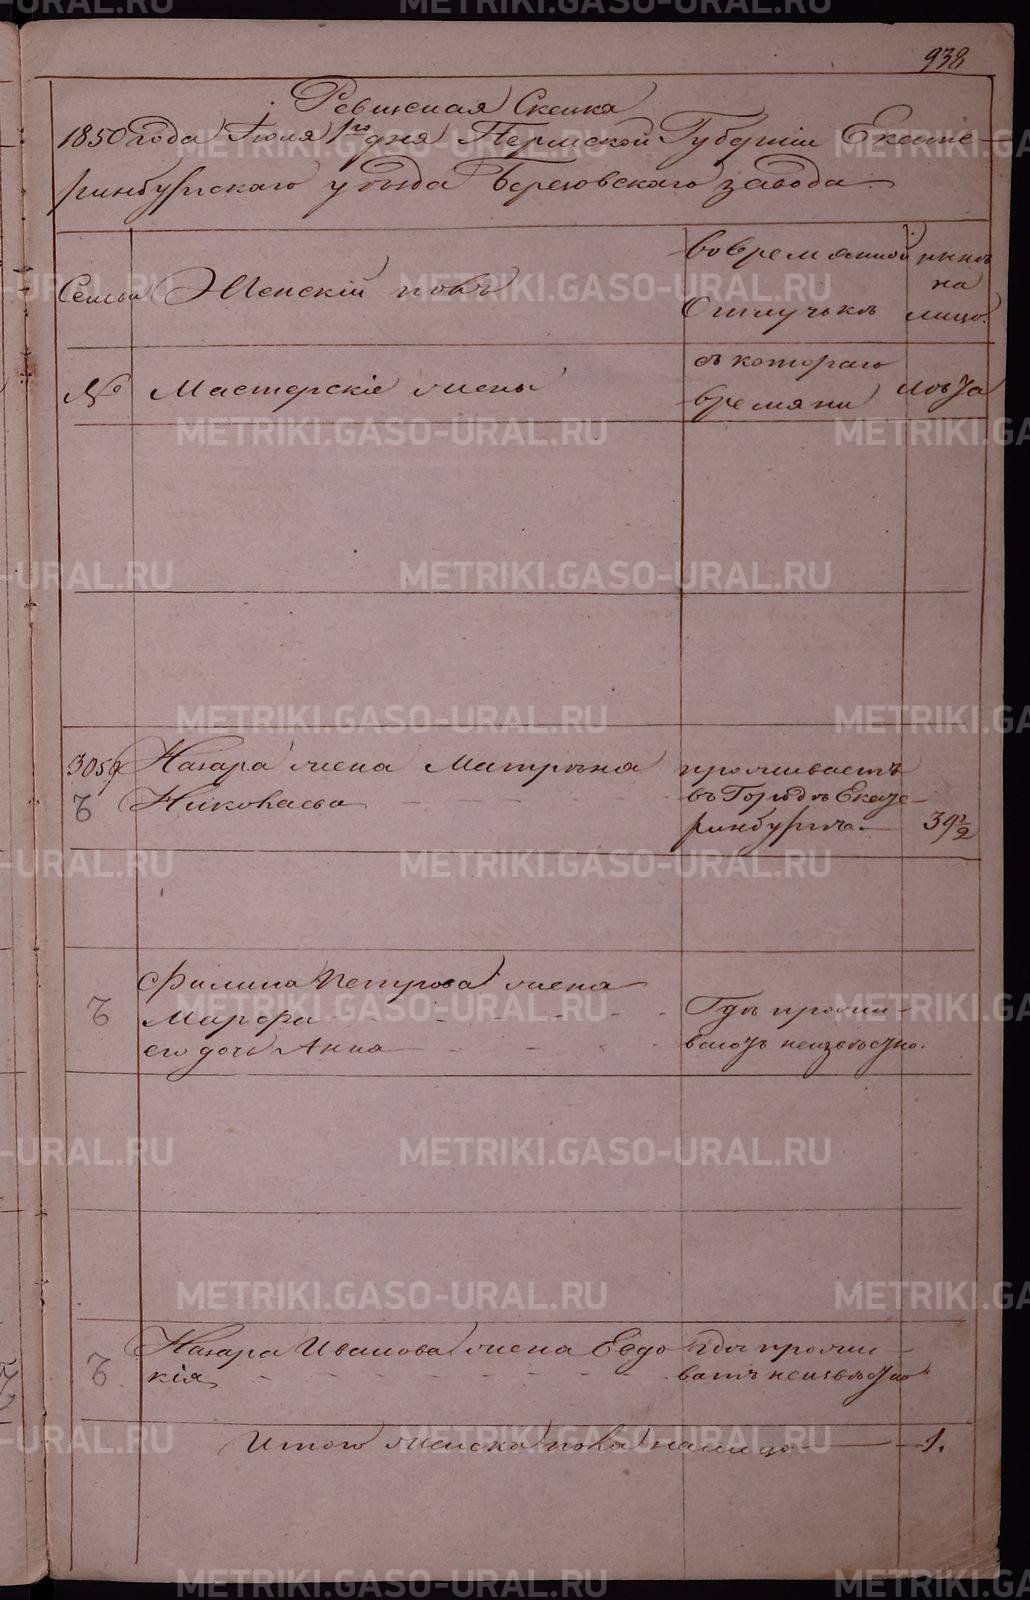 938
Ревизская Сказка
1850 года Июля 1го дня Пермской Губерніи Екате-
ринбургскаго уѣзда Березовскаго завода.
Семьи
Женскій полъ
Во временной
Отлучкѣ
нынѣ
на
лицо.
№
Мастерскіе жены
съ котораго
времяни
лѣта
3059
Назара жена Матрена
Николаева
проживаетъ
въ Городѣ Екате-
ринбургѣ.
39 1/2
Филипа Петрова жена
Марфа
его дочь Анна
Гдѣ прожи-
ваютъ неизвѣстно.
Назара Иванова жена Евдо
кія
гдѣ прожи-
ваетъ неизвѣстно
Итого женска пола налицо
1.
METRIKI.GASO-URAL.RU